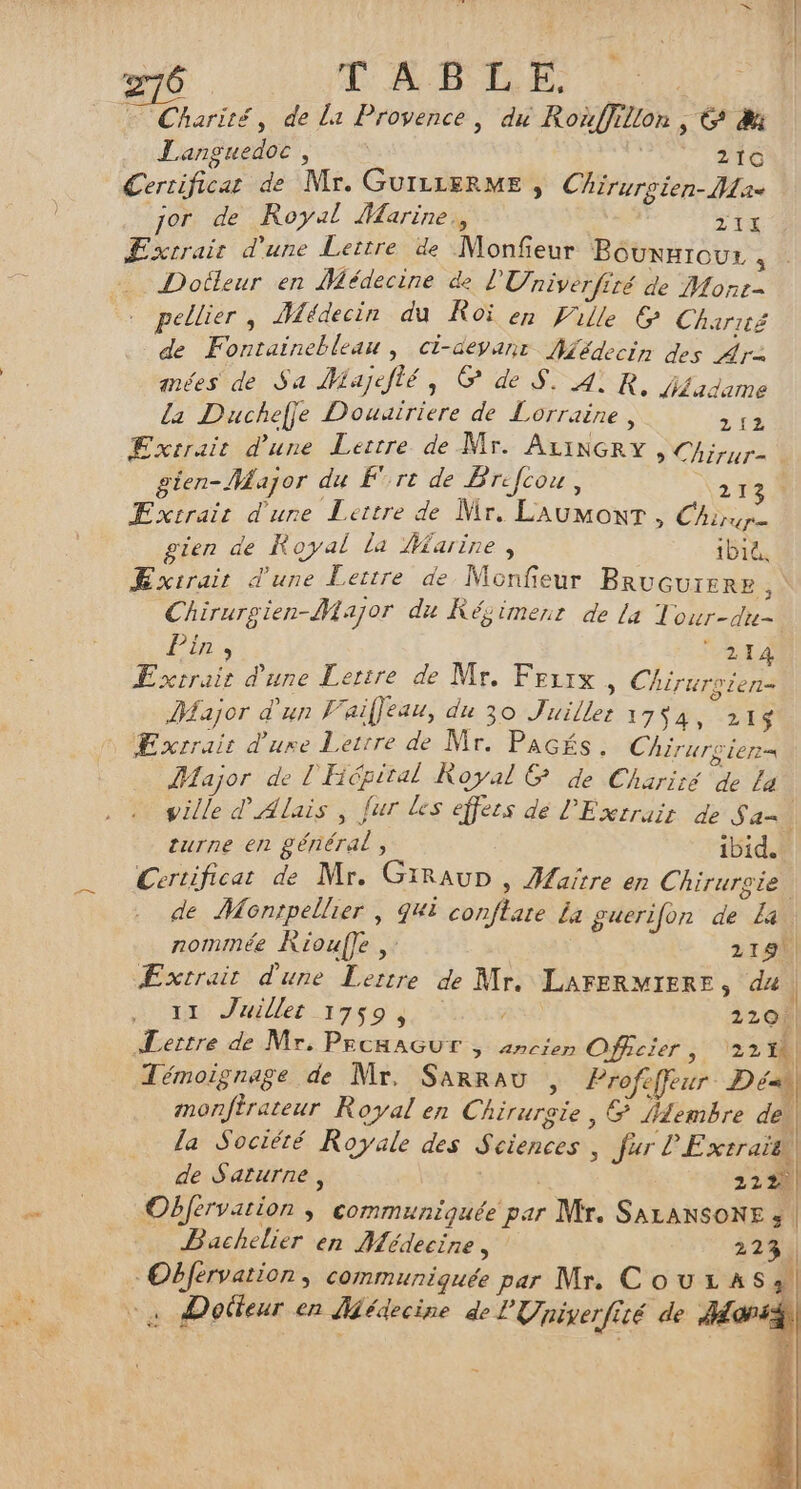 276 TABLE.
Charité, de la Provence, du Rouſſillon, & du
Languedoc, 210
Certificat de Mr. GUILLERME, Chirurgien-Ma-
jor de Royal Marine, 211
Extrait d'une Lettre de Monſieur BOUNHIOUL,
Docteur en Médecine de l'Univerſité de Mont-
pellier, Médecin du Roi en Ville & Charité
de Fontainebleau, ci-devant Médecin des Ar-
mées de Sa Majeſté, & de S. A. R. Madame
la Ducheſſe Douairiere de Lorraine, 212
Extrait d'une Lettre de Mr. ALINGRY, Chirur-
gien-Major du Fort de Breſcou, 213
Extrait d'une Lettre de Mr. LAUMONT, Chirur-
gien de Royal la Marine, ibid.
Extrait d'une Lettre de Monſieur BRUGUIERE,
Chirurgien-Major du Régiment de la Tour-du-
Pin, 214
Extrait d'une Lettre de Mr. FELIX, Chirurgien-
Major d'un Vaiſſeau, du 30 Juillet 1754, 215
Extrait d'une Lettre de Mr. PAGÉS. Chirurgien-
Major de l'Hôpital Royal & de Charité de la
ville d'Alais, ſur les effets de l'Extrait de Sa-
turne en général, ibid.
Certificat de Mr. GIRAUD, Maitre en Chirurgie
de Montpellier, qui conſtate la gueriſon de la
nommée Riouſſe, 219
Extrait d'une Lettre de Mr. LAFERMIERE, du
11 Juillet 1759, 220
Lettre de Mr. PECHAGUT, ancien Officier, 221
Témoignage de Mr. SARRAU, Profeſſeur Dé-
monſtrateur Royal en Chirurgie, & Membre de
la Société Royale des Sciences, ſur l'Extrait
de Saturne, 222
Obſervation, communiquée par Mr. SALANSONE,
Bachelier en Médecine, 223
Obſervation, communiquée par Mr. COULAS,
Docteur en Médecine de l'Univerſité de Mont-